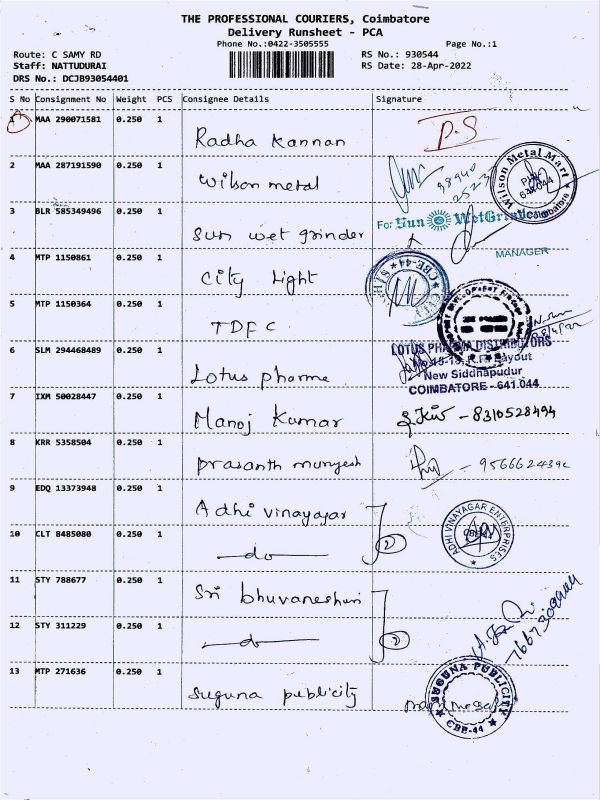 THE PROFESSIONAL COURIERS, Coimbatore
Delivery Runsheet - PCA
Phone No.:0422-3505555
Page No.:1
Route: C SAMY RD
RS No.: 930544
Staff: NATTUDURAI
RS Date: 28-Apr-2022
DRS No.: DCJB93054401
S No Consignment No Weight PCS Consignee Details Signature
1 MAA 290071581 0.250 1 Radha Kannan P.S
2 MAA 287191590 0.250 1 Wilson metal
Wilson Metal Mart
Coimbatore
3 BLR 585349496 0.250 1 Sun wet grinder
For Sun WetGrinders
MANAGER
4 MTP 1150861 0.250 1 City Light
CBE-44
5 MTP 1150364 0.250 1 TDFC
6 SLM 294468489 0.250 1 Lotus pharma
LOTUS PHARMA DISTRIBUTORS
Layout
New Siddhapudur
COIMBATORE - 641 044
7 IXM 50028447 0.250 1 Manoj Kumar - 8310528494
8 KRR 5358504 0.250 1 prasanth murugesh
9 EDQ 13373948 0.250 1 Adhi vinayagar
10 CLT 8485080 0.250 1 -do- 2
ADHI VINAYAGAR ENTERPRISES
CBE-44
11 STY 788677 0.250 1 Sri bhuvaneshwari
12 STY 311229 0.250 1 -do- 2
13 MTP 271636 0.250 1 Suguna publicity
SUGUNA PUBLICITY
CBE-44